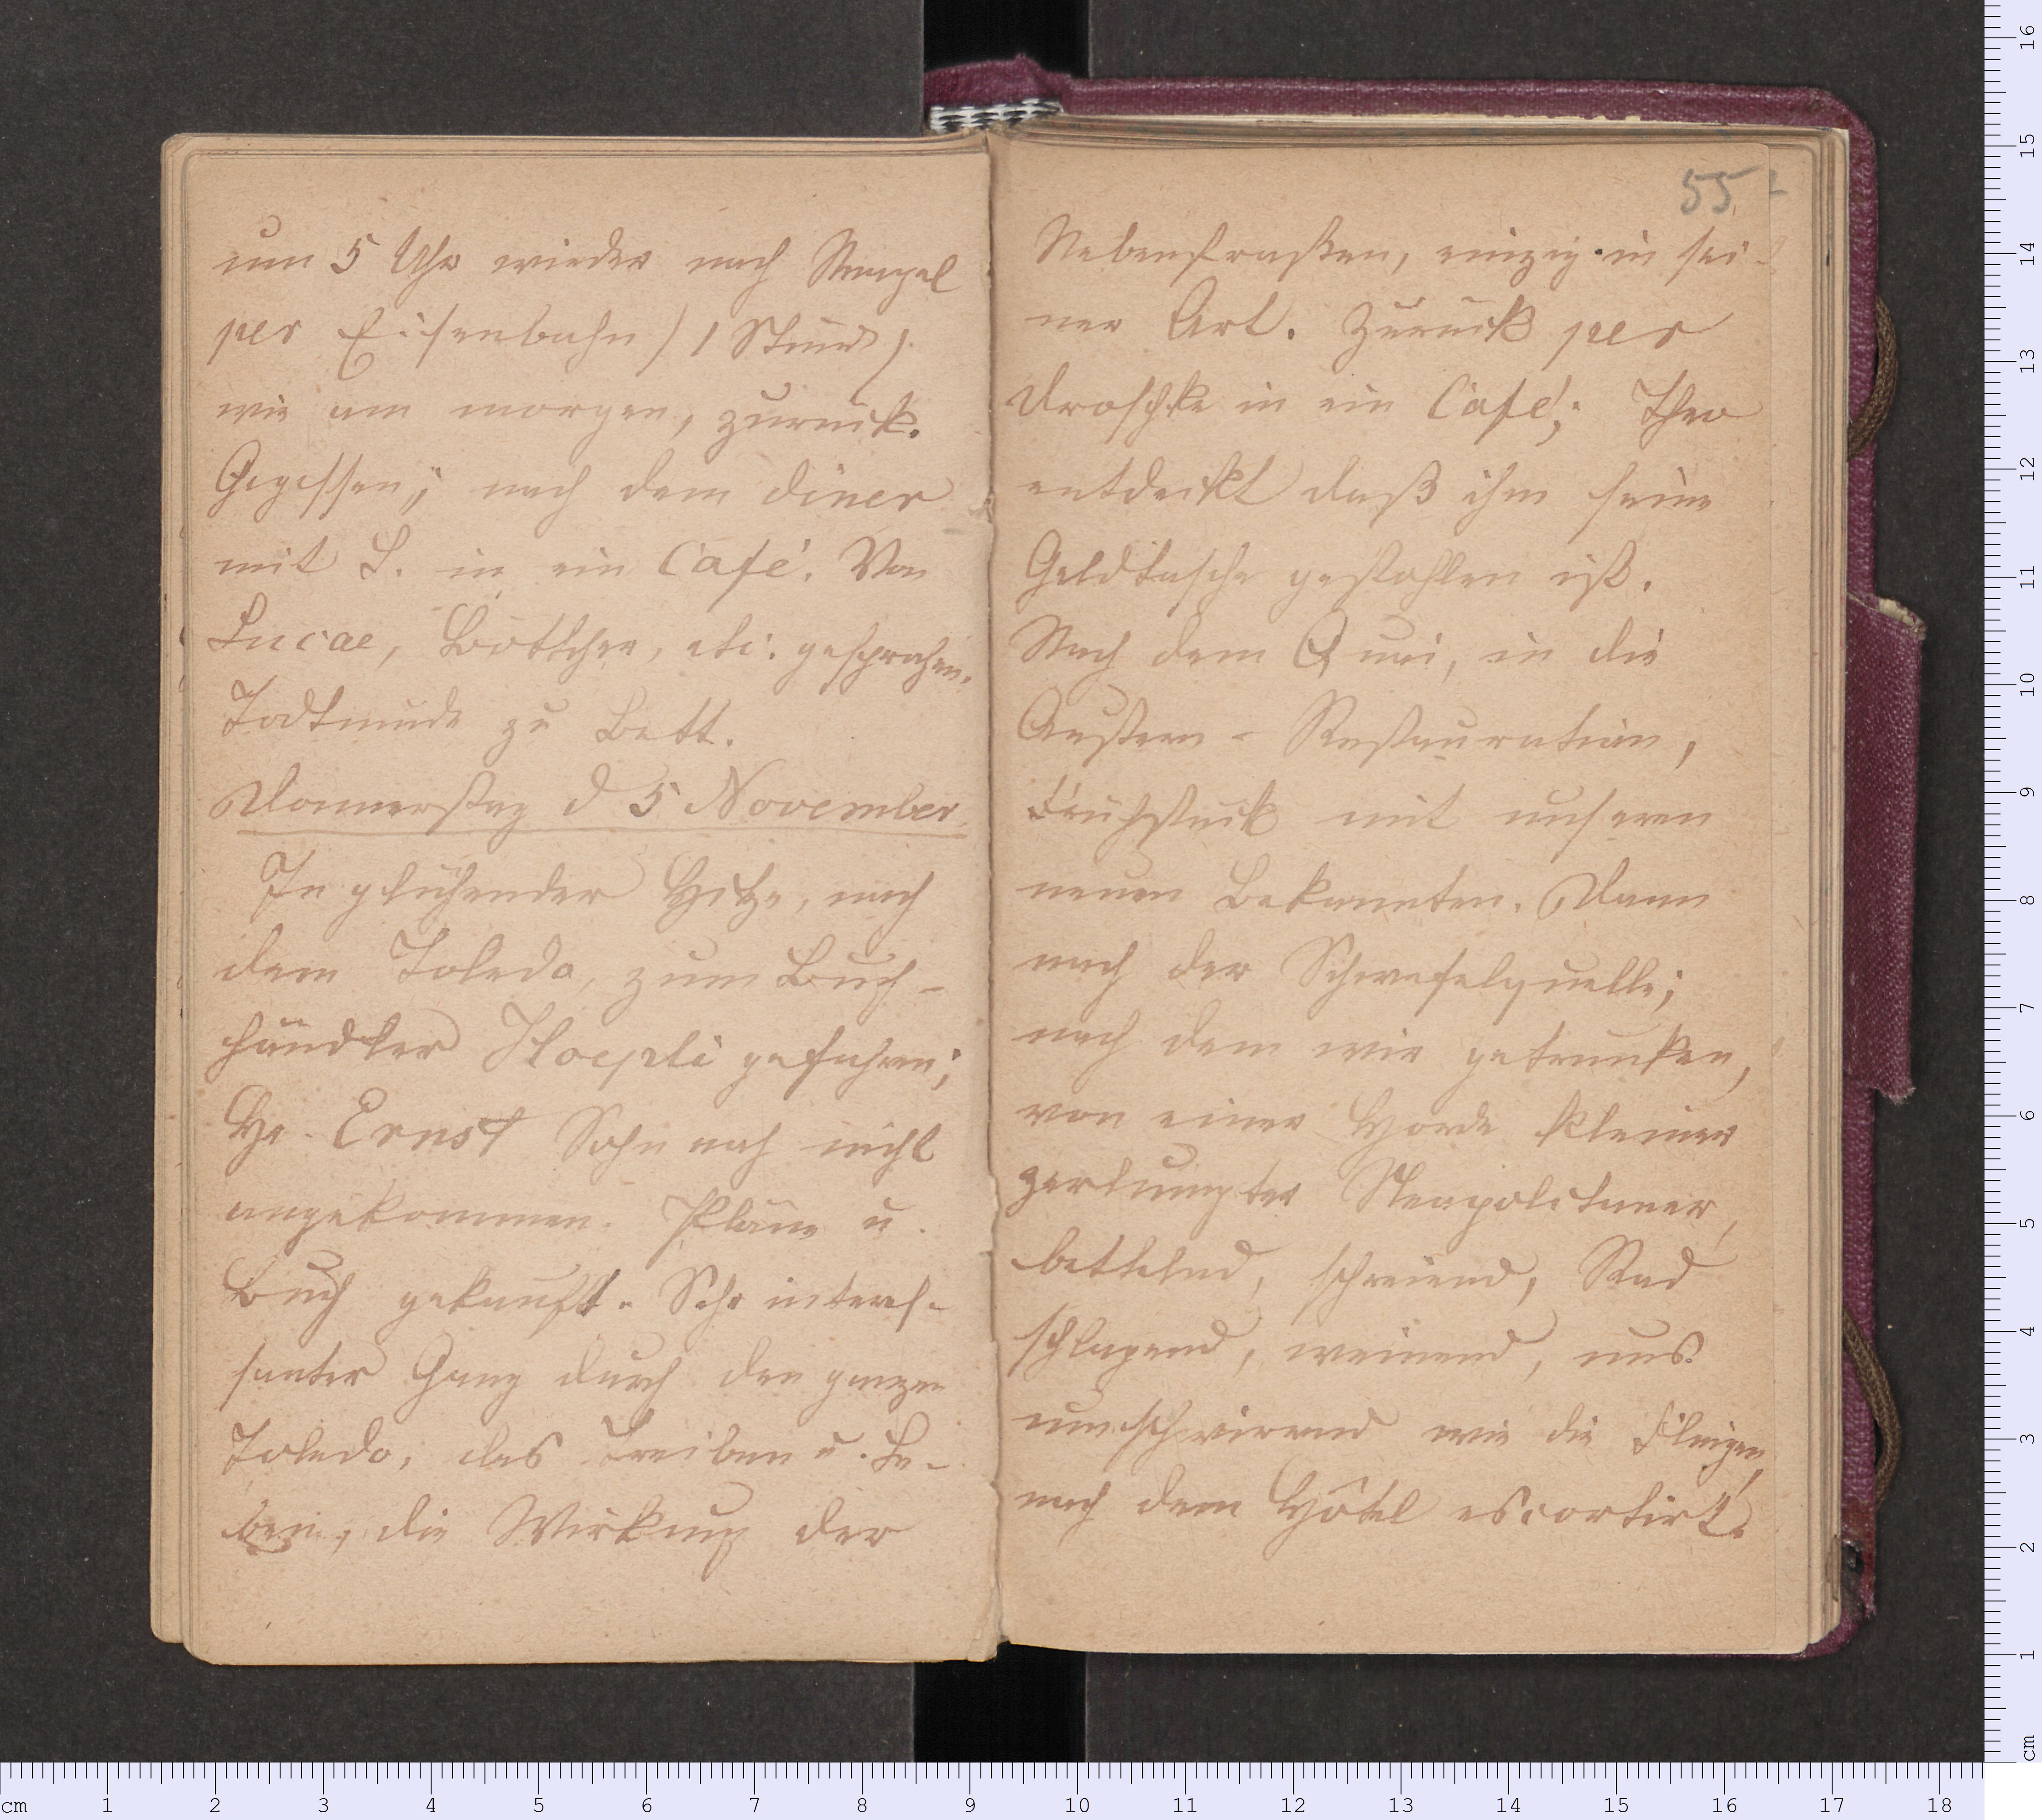 um 5 Uhr wieder nach Neapel
per Eisenbahn (1 Stund)
wie am morgen, zurück.
Gegessen; nach dem diner
mit L. in ein Café. Von
Lucae, Bötticher, etc: gesprochen.
Todtmüde zu Bett.
Donnerstag d 5 November
In glühender Hitze, nach
dem Toledo, zum Buch-
händler Hoepli gefahren;
Hr. Ernst Sohn noch nicht
angekommen. Pläne u.
Buch gekauft. Sehr interes-
santer Gang durch den ganzen
Toledo, das Treiben u. Le-
ben, die Wirkung der
55
Nebenstraßen, einzig in sei-
ner Art. Zurück per
Droschke in ein Café; Theo
entdeckt daß ihm seine
Geldtasche gestohlen ist.
Nach dem Quai, in die
Austern-Restauration,
Frühstück mit unseren
neuen Bekannten. Dann
nach der Schwefelquelle;
nach dem wir getrunken,
von einer Horde kleiner
zerlumpter Neapolitaner,
bettelnd, schreiend, Rad
schlagend, weinend, uns
umschwirrend wie die Fliegen,
nach dem Hôtel escortirt.